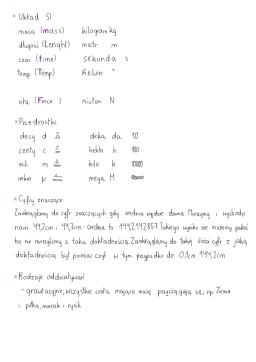 Układ SI
masa (mass) kilogram kg
długość (Lenght) metr m
czas (time) sekunda s
temp. (Temp) Kelvin °
siła (Force) niuton N
Przedrostki
decy d deka da 10
centy c hekto h 100
mili m kilo k
mikro μ mega M
Cyfry znaczące
Zaokrąglamy do cyfr znaczących gdy średnia wyjdzie dziwna. Mierzymy i wychodzi
nam 44,2cm i 44,3cm średnia to Takiego wyniku nie możemy podać
bo nie mierzyliśmy z taką dokładnością. Zaokrąglamy do takiej ilości cyfr z jaką
dokładnością był pomiar czyli w tym przypadku do 0,1cm. 144,2cm
Rodzaje oddziaływań
- grawitacyjne, wszystkie ciała mające masę przyciągają się, np. Ziemia
i piłka, murak i rysik